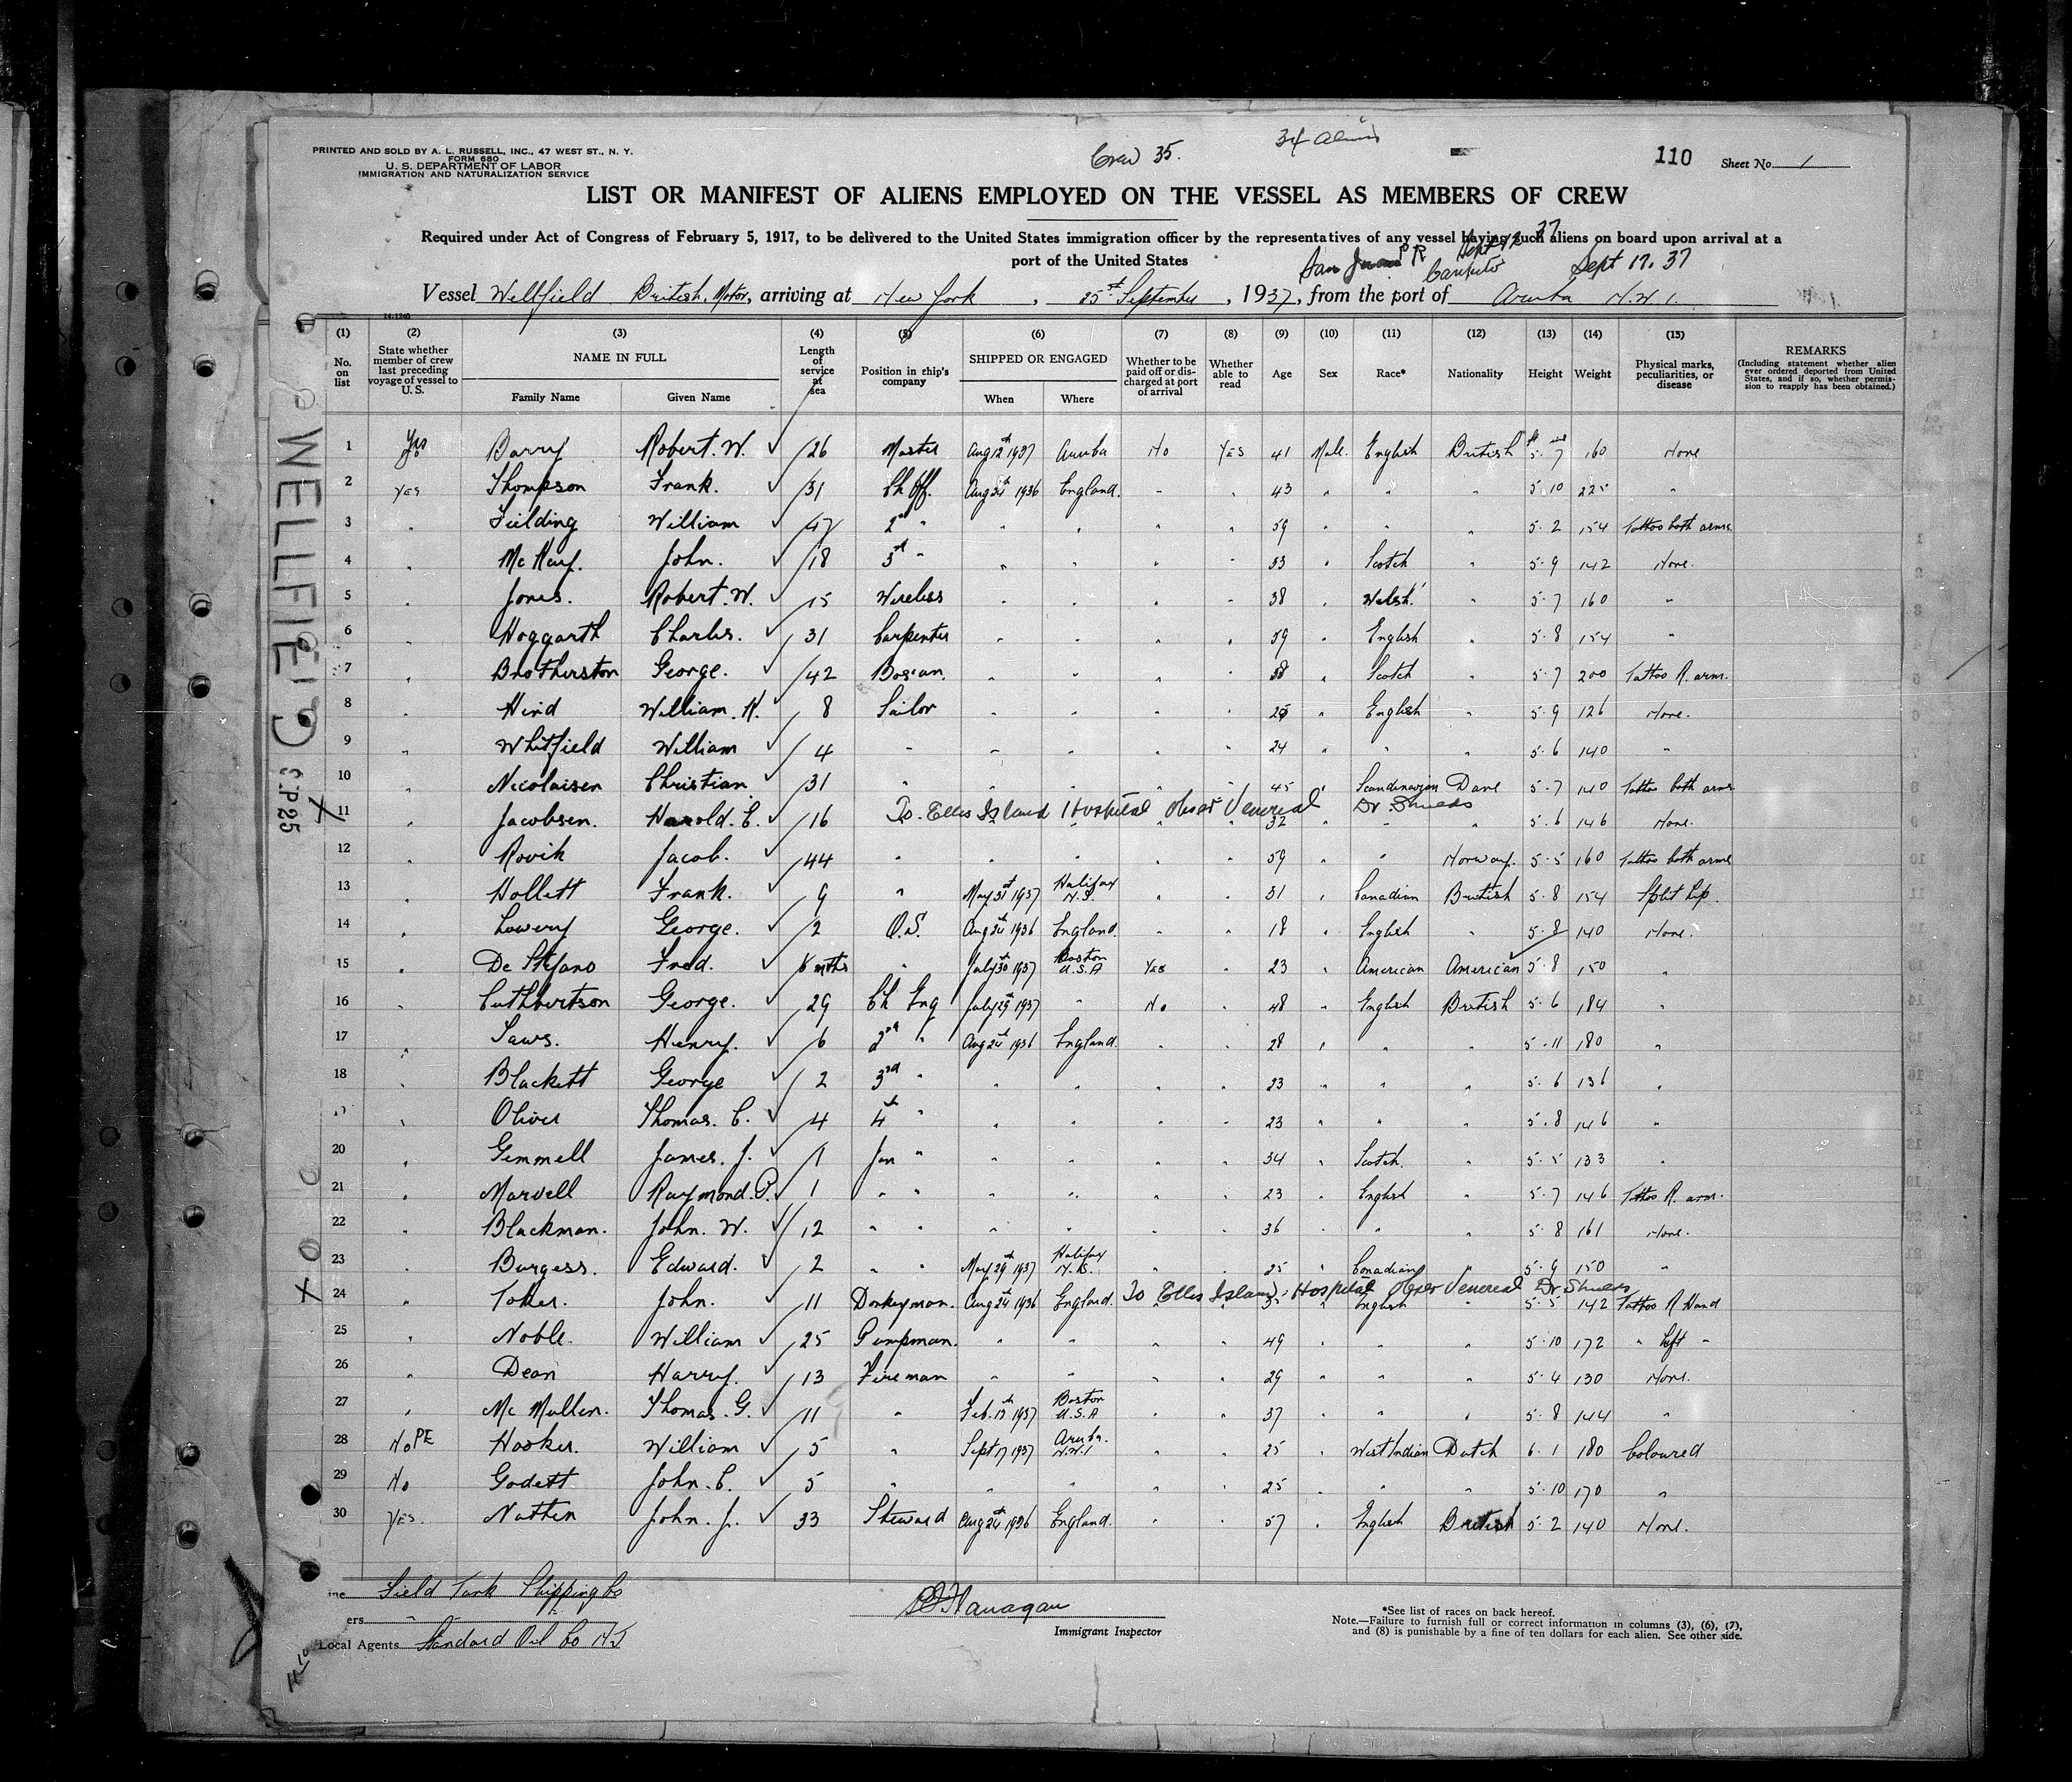 Crew 35.
34 Aliens
110 Sheet No. 1
PRINTED AND SOLD BY A. L. RUSSELL, INC., 47 WEST ST., N. Y.
FORM 680
U. S. DEPARTMENT OF LABOR
IMMIGRATION AND NATURALIZATION SERVICE
LIST OR MANIFEST OF ALIENS EMPLOYED ON THE VESSEL AS MEMBERS OF CREW
Required under Act of Congress of February 5, 1917, to be delivered to the United States immigration officer by the representatives of any vessel having such aliens on board upon arrival at a
port of the United States
San Juan P R
Sept 17. 37
Vessel Wellfield British, Motor, arriving at New York, 25th September, 1937, from the port of Aruba N.W.I.
(1) (2) (3) (4) (5) (6) (7) (8) (9) (10) (11) (12) (13) (14) (15)
No. on list
State whether member of crew last preceding voyage of vessel to U. S.
NAME IN FULL
Family Name Given Name
Length of service at sea
Position in ship's company
SHIPPED OR ENGAGED
When Where
Whether to be paid off or discharged at port of arrival
Whether able to read
Age Sex Race* Nationality Height Weight
Physical marks, peculiarities, or disease
REMARKS
(Including statement whether alien ever ordered deported from United States, and if so, whether permission to reapply has been obtained.)
1 Yes Barry Robert. W. 26 Master Aug 12th 1937 Aruba No YES 41 Male English British 5 7 160 None
2 YES Thompson Frank. 31 Ch Off. Aug 24th 1936 England. " " 43 " " " 5 10 225 "
3 " Fielding William 47 2nd " " " " " 59 " " " 5 2 154 Tattoo both arms.
4 " McKay. John. 18 3rd " " " " " 33 " Scotch " 5 9 142 None.
5 " Jones. Robert. W. 15 Wireless " " " " 38 " Welsh " 5 7 160 "
6 " Hoggarth Charles. 31 Carpenter " " " " 59 " English " 5 8 154 "
7 " Brotherston George. 42 Bos'un " " " " 58 " Scotch " 5 7 200 Tattoo R. arm.
8 " Hind William. H. 8 Sailor " " " " 25 " English " 5 9 126 None.
9 " Whitfield William 4 " " " " " 24 " " " 5 6 140 "
10 " Nicolaisen Christian 31 " " " " " 45 " Scandinavian Dane 5 7 140 Tattoo both arms
To Ellis Island Hospital obser Venereal Dr. Shields
11 " Jacobsen. Harold. C. 16 " " " 32 " " " 5 6 146 None.
12 " Rovik Jacob. 44 " " " " " 59 " " Norway. 5 5 160 Tattoo both arms
13 " Hollett Frank. 9 " May 31st 1937 Halifax N.S. " " 31 " Canadian British 5 8 154 Split Lip.
14 " Lowery George. 2 O.S. Aug 24th 1936 England. " " 18 " English " 5 8 140 None.
15 " De Stefano Fred. 6 mths " July 30th 1937 Boston U.S.A YES " 23 " American American 5 8 150 "
16 " Cuthbertson George. 29 Ch Eng July 29th 1937 " No " 48 " English British 5 6 184 "
17 " Saws. Henry. 6 2nd " Aug 24th 1936 England. " " 28 " " " 5 11 180 "
18 " Blackett George 2 3rd " " " " " 23 " " " 5 6 136 "
19 " Oliver Thomas. C. 4 4th " " " " " 23 " " " 5 8 146 "
20 " Gemmell James. J. 1 Jun " " " " " 34 " Scotch. " 5 5 133 "
21 " Marvell Raymond. P. 1 " " " " " " 23 " English " 5 7 146 Tattoo R. arm.
22 " Blackman. John. W. 12 " " " " " " 36 " " " 5 8 161 None.
23 " Burgess. Edward. 2 " " May 29th 1937 Halifax N.S. " " 25 " Canadian " 5 9 150 "
To Ellis Island Hospital obser Venereal Dr. Shields
24 " Toker. John. 11 Donkeyman. Aug 24th 1936 England. English " 5 5 142 Tattoo R Hand
25 " Noble. William 25 Pumpman. " " " " 49 " " " 5 10 172 " Left "
26 " Dean Harry. 13 Fireman " " " " 29 " " " 5 4 130 None.
27 " Mc Mullen. Thomas. G. 11 " Feb. 13th 1937 Boston U.S.A " " 37 " " " 5 8 144 "
28 No PE Hooker. William 5 " Sept 17 1937 Aruba. N.W.I " " 25 " West Indian Dutch 6 1 180 Coloured
29 No Godett John. C. 5 " " " " " 25 " " " 5 10 170 "
30 YES. Nathen John. J. 33 Steward Aug 24th 1936 England. " " 57 " English British 5 2 140 None.
WELLFIELD
SP 25
Field Tank Shipping Co
ers
Local Agents Standard Oil Co N.J
Flanagan
Immigrant Inspector
*See list of races on back hereof.
Note.—Failure to furnish full or correct information in columns (3), (6), (7),
and (8) is punishable by a fine of ten dollars for each alien. See other side.